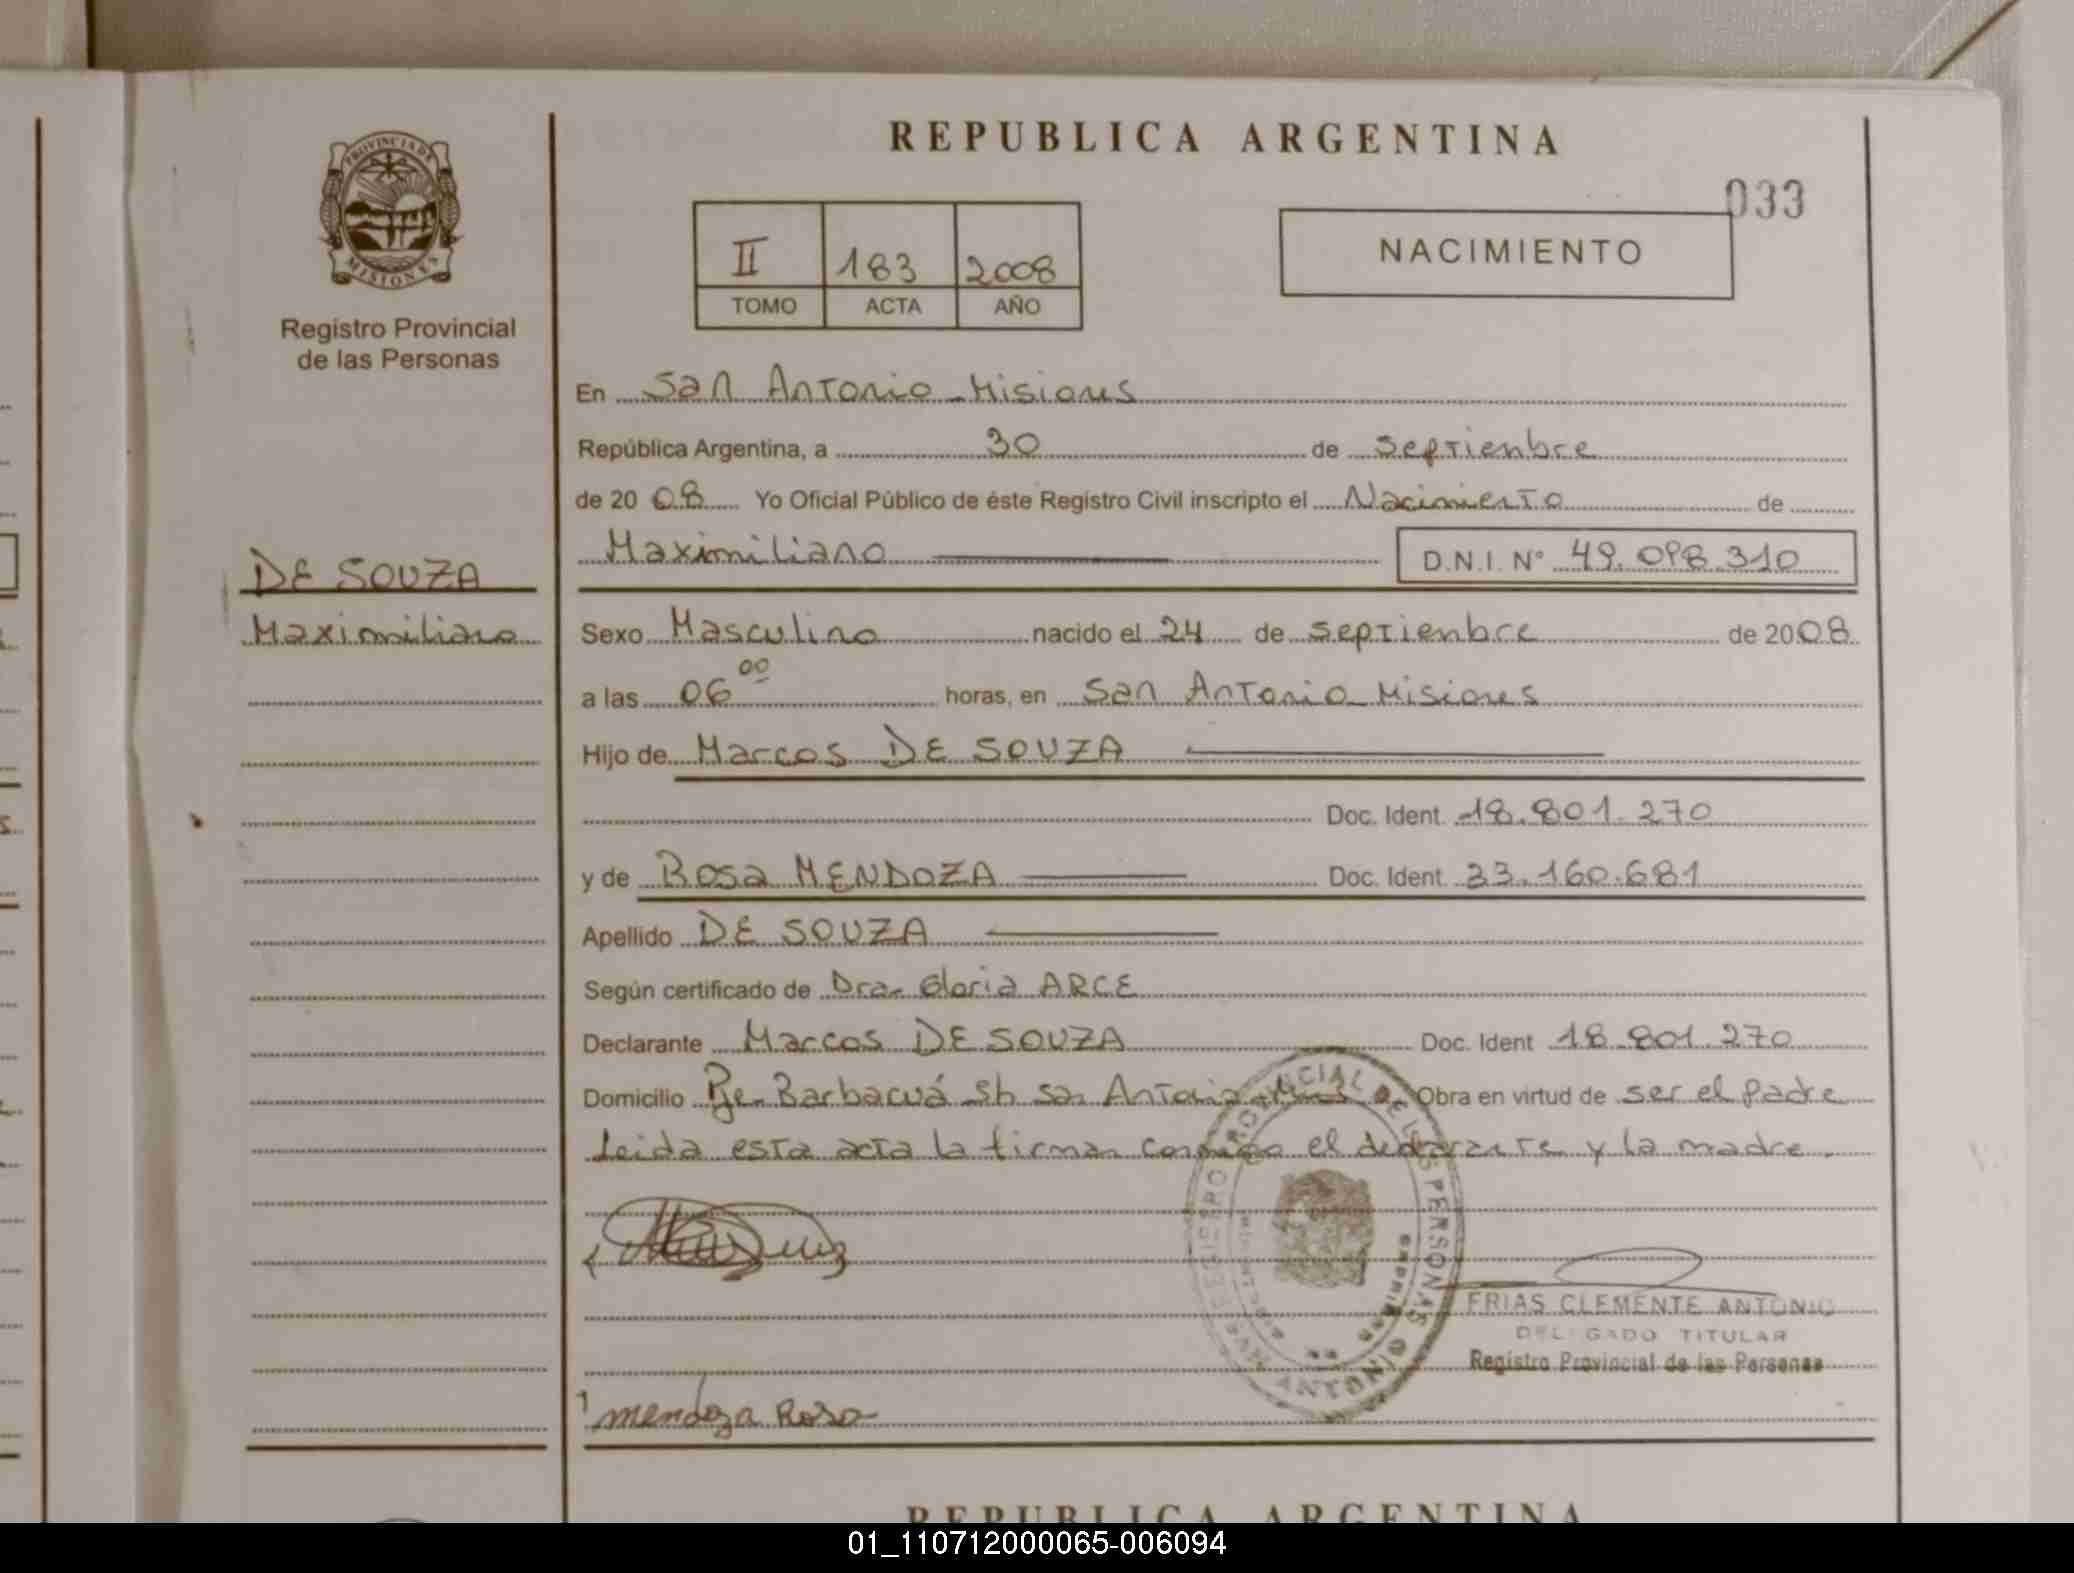 REPUBLICA ARGENTINA
033
PROVINCIA DE
MISIONES
Registro Provincial
de las Personas
II 183 2008
TOMO ACTA AÑO
NACIMIENTO
En San Antonio - Misiones
República Argentina, a 30 de septienbre
de 20 08 Yo Oficial Público de éste Registro Civil inscripto el Nacimiento de
Maximiliano D.N.I. N° 49.098.310
DE SOUZA
Maximiliano
Sexo Masculino nacido el 24 de septienbre de 2008
a las 06 00 horas, en San Antonio - Misiones
Hijo de Marcos DE SOUZA
Doc. Ident. 18.801.270
y de Rosa MENDOZA Doc. Ident. 33.160.681
Apellido DE SOUZA
Según certificado de Dra. Gloria ARCE
Declarante Marcos DE SOUZA Doc. Ident 18.801.270
Domicilio Pje. Barbacuá Sh San Antonio Mnes Obra en virtud de ser el padre
Leida esta acta la firman conmigo el declarante y la madre.
REGISTRO PROVINCIAL DE LAS PERSONAS
ANTONIO
FRIAS CLEMENTE ANTONIO
DELEGADO TITULAR
Registro Provincial de las Personas
mendoza Rosa
REPUBLICA ARGENTINA
01_110712000065-006094